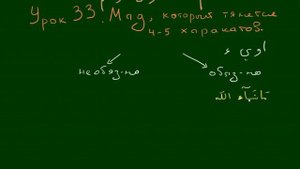 Урок 33. Мад, который тянется
4-5 харакатов.
اوي ء
необяз-но обяз-но
مَاشَآءَ الله